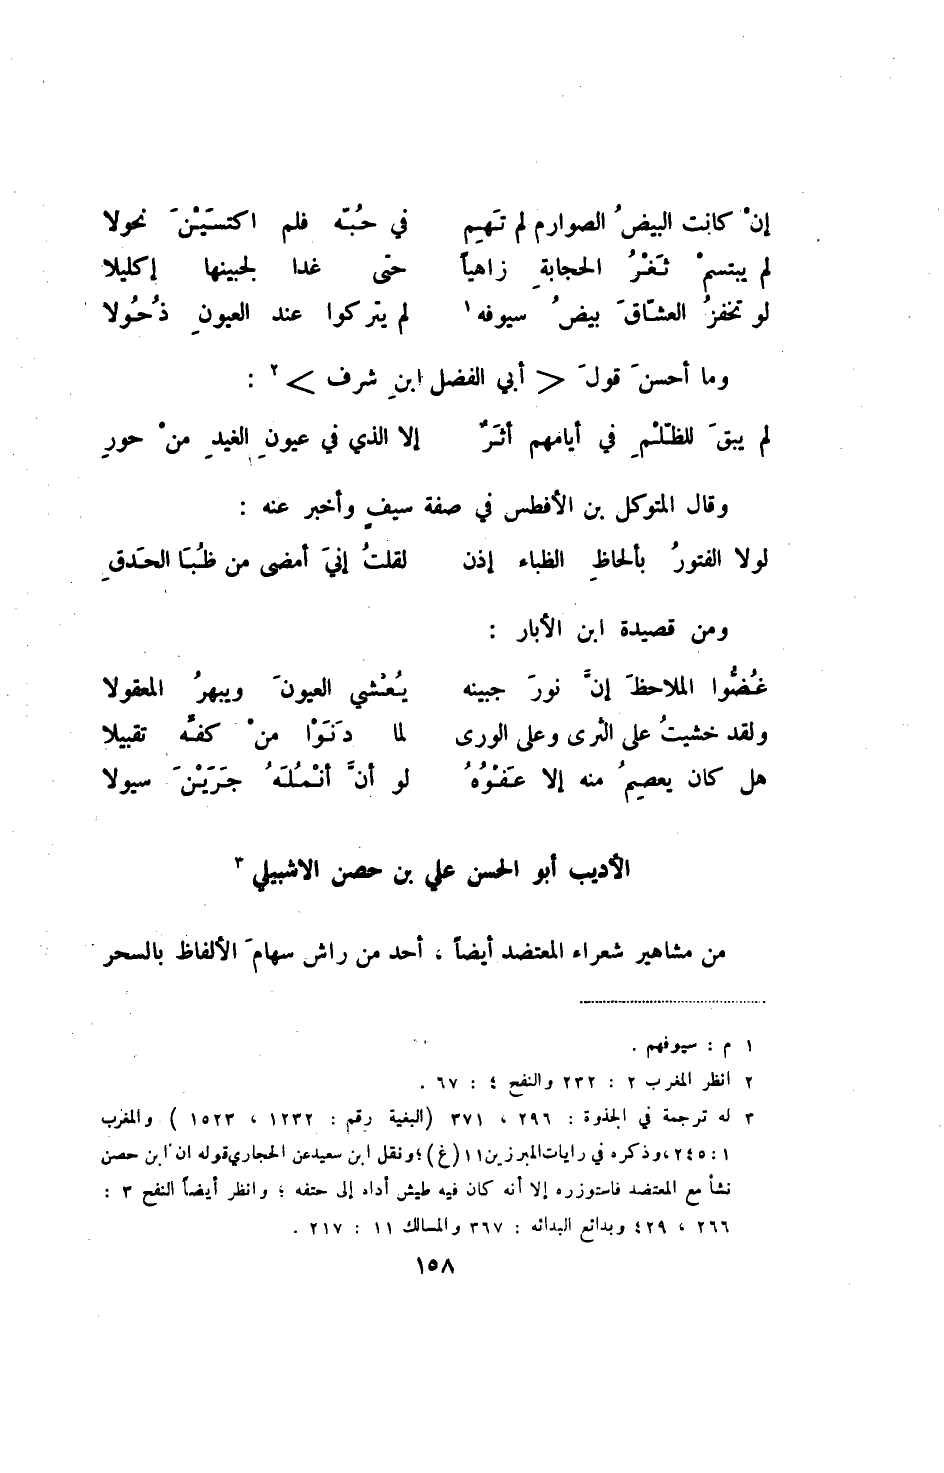 إنْ كانت البيضُ الصوارم لم تَهِمِ في حُبّه فلم اكتسَيْنَ نحولا
لم يبتسمْ ثَغْرُ الحجابةِ زاهياً حتّى غدا لجبينها إكليلا
لو تحفزُ العشّاقَ بيضُ سيوفه١ لم يتركوا عند العيونِ ذُحُولا
وما أحسنَ قولَ < أبي الفضل ابنِ شرف >٢ :
لم يبقَ للظّلْمِ في أيامهم أثَرٌ إلا الذي في عيونِ الغيدِ منْ حورِ
وقال المتوكل بن الأفطس في صفة سيفٍ وأخبر عنه :
لولا الفتورُ بألحاظِ الظباء إذن لقلتُ إنيَ أمضى من ظُبَا الحَدقِ
ومن قصيدة ابن الأبار :
غُضُّوا الملاحظَ إنَّ نورَ جبينه يُعْشي العيونَ ويبهرُ المعقولا
ولقد خشيتُ على الثرى وعلى الورى لما دَنَوْا منْ كفّه تقبيلا
هل كان يعصِمُ منه إلا عَفْوُهُ لو أنَّ أنْمُلَهُ جَرَيْنَ سيولا
الأديب أبو الحسن علي بن حصن الاشبيلي٣
من مشاهير شعراء المعتضد أيضاً ، أحد من راش سهامَ الألفاظ بالسحر
١ م : سيوفهم .
٢ انظر المغرب ٢ : ٢٣٢ والنفح ٤ : ٦٧ .
٣ له ترجمة في الجذوة : ٢٩٦ ، ٣٧١ (البغية رقم : ١٢٣٢ ، ١٥٢٣ ) والمغرب
١ : ٢٤٥ ، وذكره في رايات المبرزين ١١ (غ) ؛ ونقل ابن سعيد عن الحجاري قوله ان ابن حصن
نشأ مع المعتضد فاستوزره إلا أنه كان فيه طيش أداه إلى حتفه ؛ وانظر أيضاً النفح ٣ :
٢٦٦ ، ٤٢٩ وبدائع البدائه : ٣٦٧ والمسالك ١١ : ٢١٧ .
١٥٨